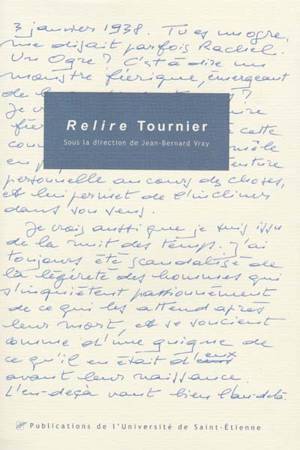 3 janvier 1938. Tu es un ogre,
me disait parfois Rachel.
Un Ogre ? C'est-à-dire un
monstre féerique, émergeant
de la
Je
Relire Tournier
Sous la direction de Jean-Bernard Vray
cette
personnelle au cours des choses,
et lui permet de l'incliner
dans son sens.
Je crois aussi que je suis issu
de la nuit des temps. J'ai
toujours été scandalisé de
la légèreté des hommes qui
s'inquiètent passionnément
de ce qui les attend après
leur mort, et se soucient
comme d'une guigne de
ce qu'il en était d'eux
avant leur naissance.
L'en-deçà vaut bien l'au-delà
Publications de l'Université de Saint-Étienne